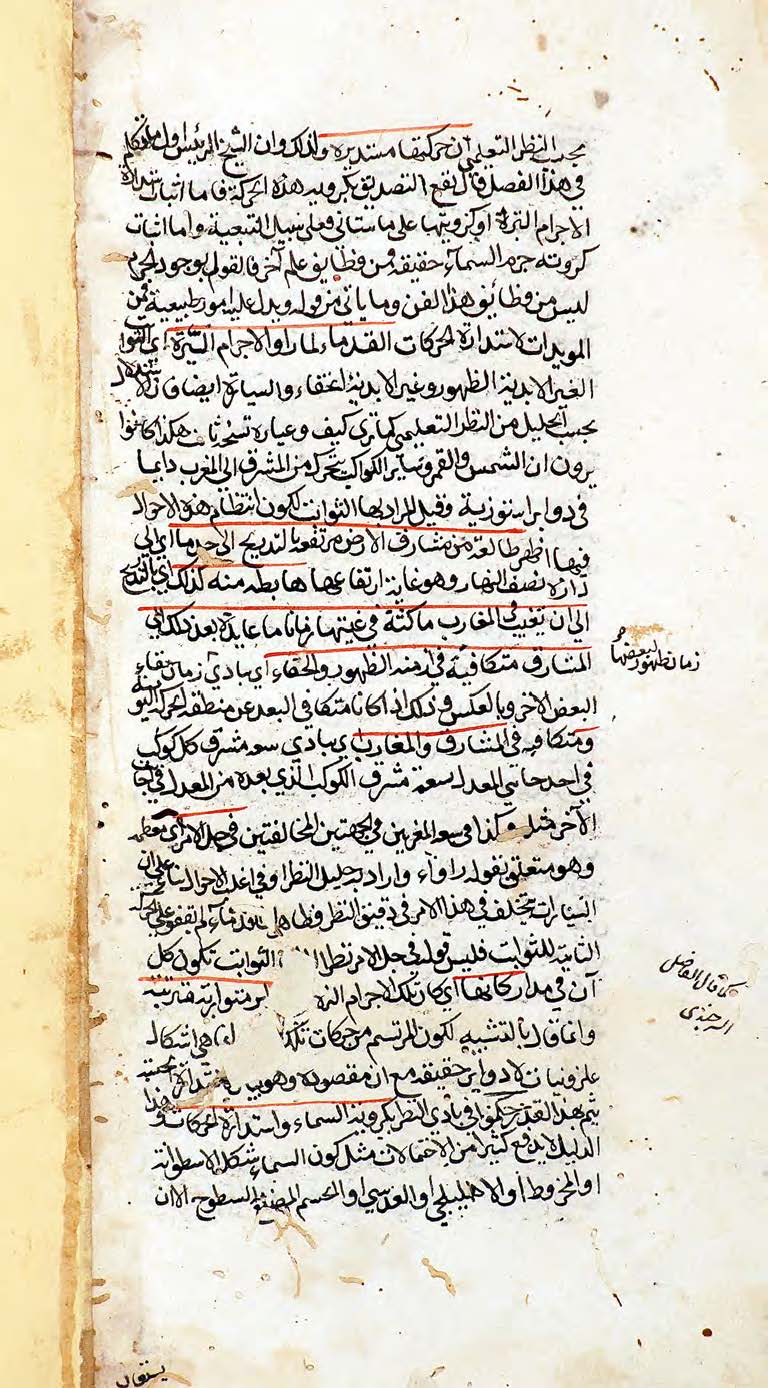 بحسب النظر التعليمي ان حركتها مستديرة ولذلك وان الشيخ الرئيس اول ما تكلم
في هذا الفصل قال يقع التصديق بكروية هذه الحركة فاما اثبات استدارة
الاجرام النيرة او كرويتها على ما ستاتي فعلى سبيل التبعية واما اثبات
كروية جرم السماء حقيقة فمن وظايف علم آخر فالقول بوجود الجرم
ليس من وظايف هذا الفن وما ياتي من قوله ويدل عليه امور طبيعية فمن
المويدات لاستدارة الحركات القدماء لما راوا الاجرام النيرة اي
الغير الابدية الظهور وغير الابدية الخفاء والسيارة ايضا
بحسب الجليل من النظر التعليمي كما ترى كيف وعبارة هكذا كانوا
يرون ان الشمس والقمر وساير الكواكب يتحرك من المشرق الى المغرب دايما
في دواير متوازية وقيل المراد بها الثوابت لكون انتظام هذه الاحوال
فيها اظهر طالعة من مشارق الارض مرتفعة بالتدريج الى حد ما اي الى
دائرة نصف النهار وهو غاية ارتفاعها هابطة منه كذلك اي بالتدريج
الى ان تغيب في المغارب ماكثة في غيبتها زمانا ما عايدة بعد ذلك الى
المشارق متكافية في ازمنة الظهور والخفاء اي يساوي زمان خفاء
زمان ظهور بعضها
البعض الاخر وبالعكس وذلك اذا كانا متكافي البعد عن منطقة الحركة
ومتكافية في المشارق والمغارب اي يساوي سعة مشرق كل كوكب
في احد جانبي المعدل سعة مشرق الكوكب الذي بعده من المعدل في جانب
الآخر مثله وكذا في سعة المغربين في الجهتين المخالفتين في جل الامر اي معظمه
وهو متعلق بقوله راوا واراد به جليل النظر او في اغلب الاحوال بناء على ان
السيارات يختلف في هذا الامر في دقيق النظر القدماء لم يقفوا على الحركة
الثانية للثوابت فليس قوله في جل الامر نظرا الثوابت تكون كل
كما قال الفاضل
البرجندي
آن في مدار كانها اي كان تلك الاجرام النيرة متوازية
وانما قال بالتشبيه لكون المرتسم من حركات تلك هي اشكال
حلزونيات لا دواير حقيقة مع ان مقصوده وهو
ثم بهذا القدر حكموا في بادي النظر بكروية السماء واستدارة الحركات وهذا
الدليل لا يدفع كثيرا من الاحتمالات مثل كون السماء شكله الاسطوانة
او المخروط او الاهليلجي او العدسي او المجسم المضلع السطوح الا ان
يستعان